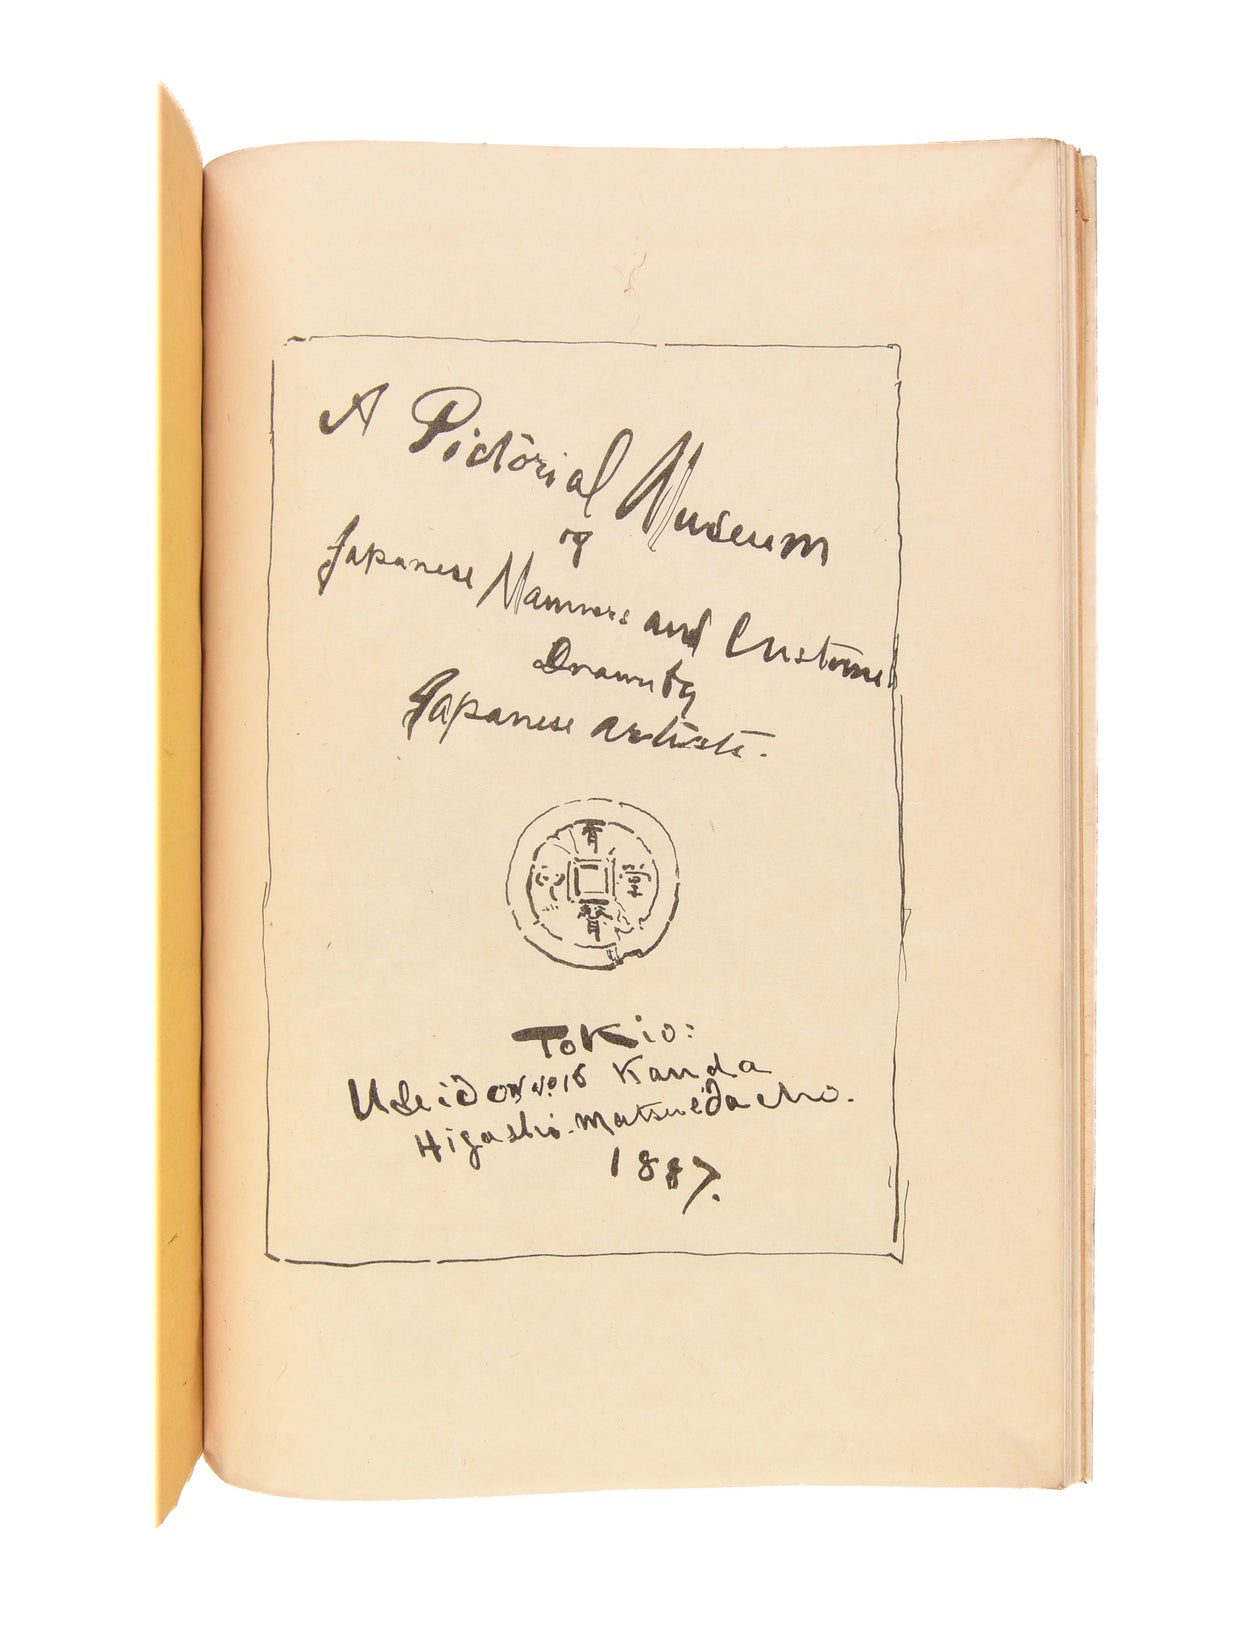 A Pictorial Museum
of
Japanese Manners and Customs
Drawn by
Japanese artists.
Tokio:
No. 16 Kanda
Higashi-Matsuedacho.
1887.